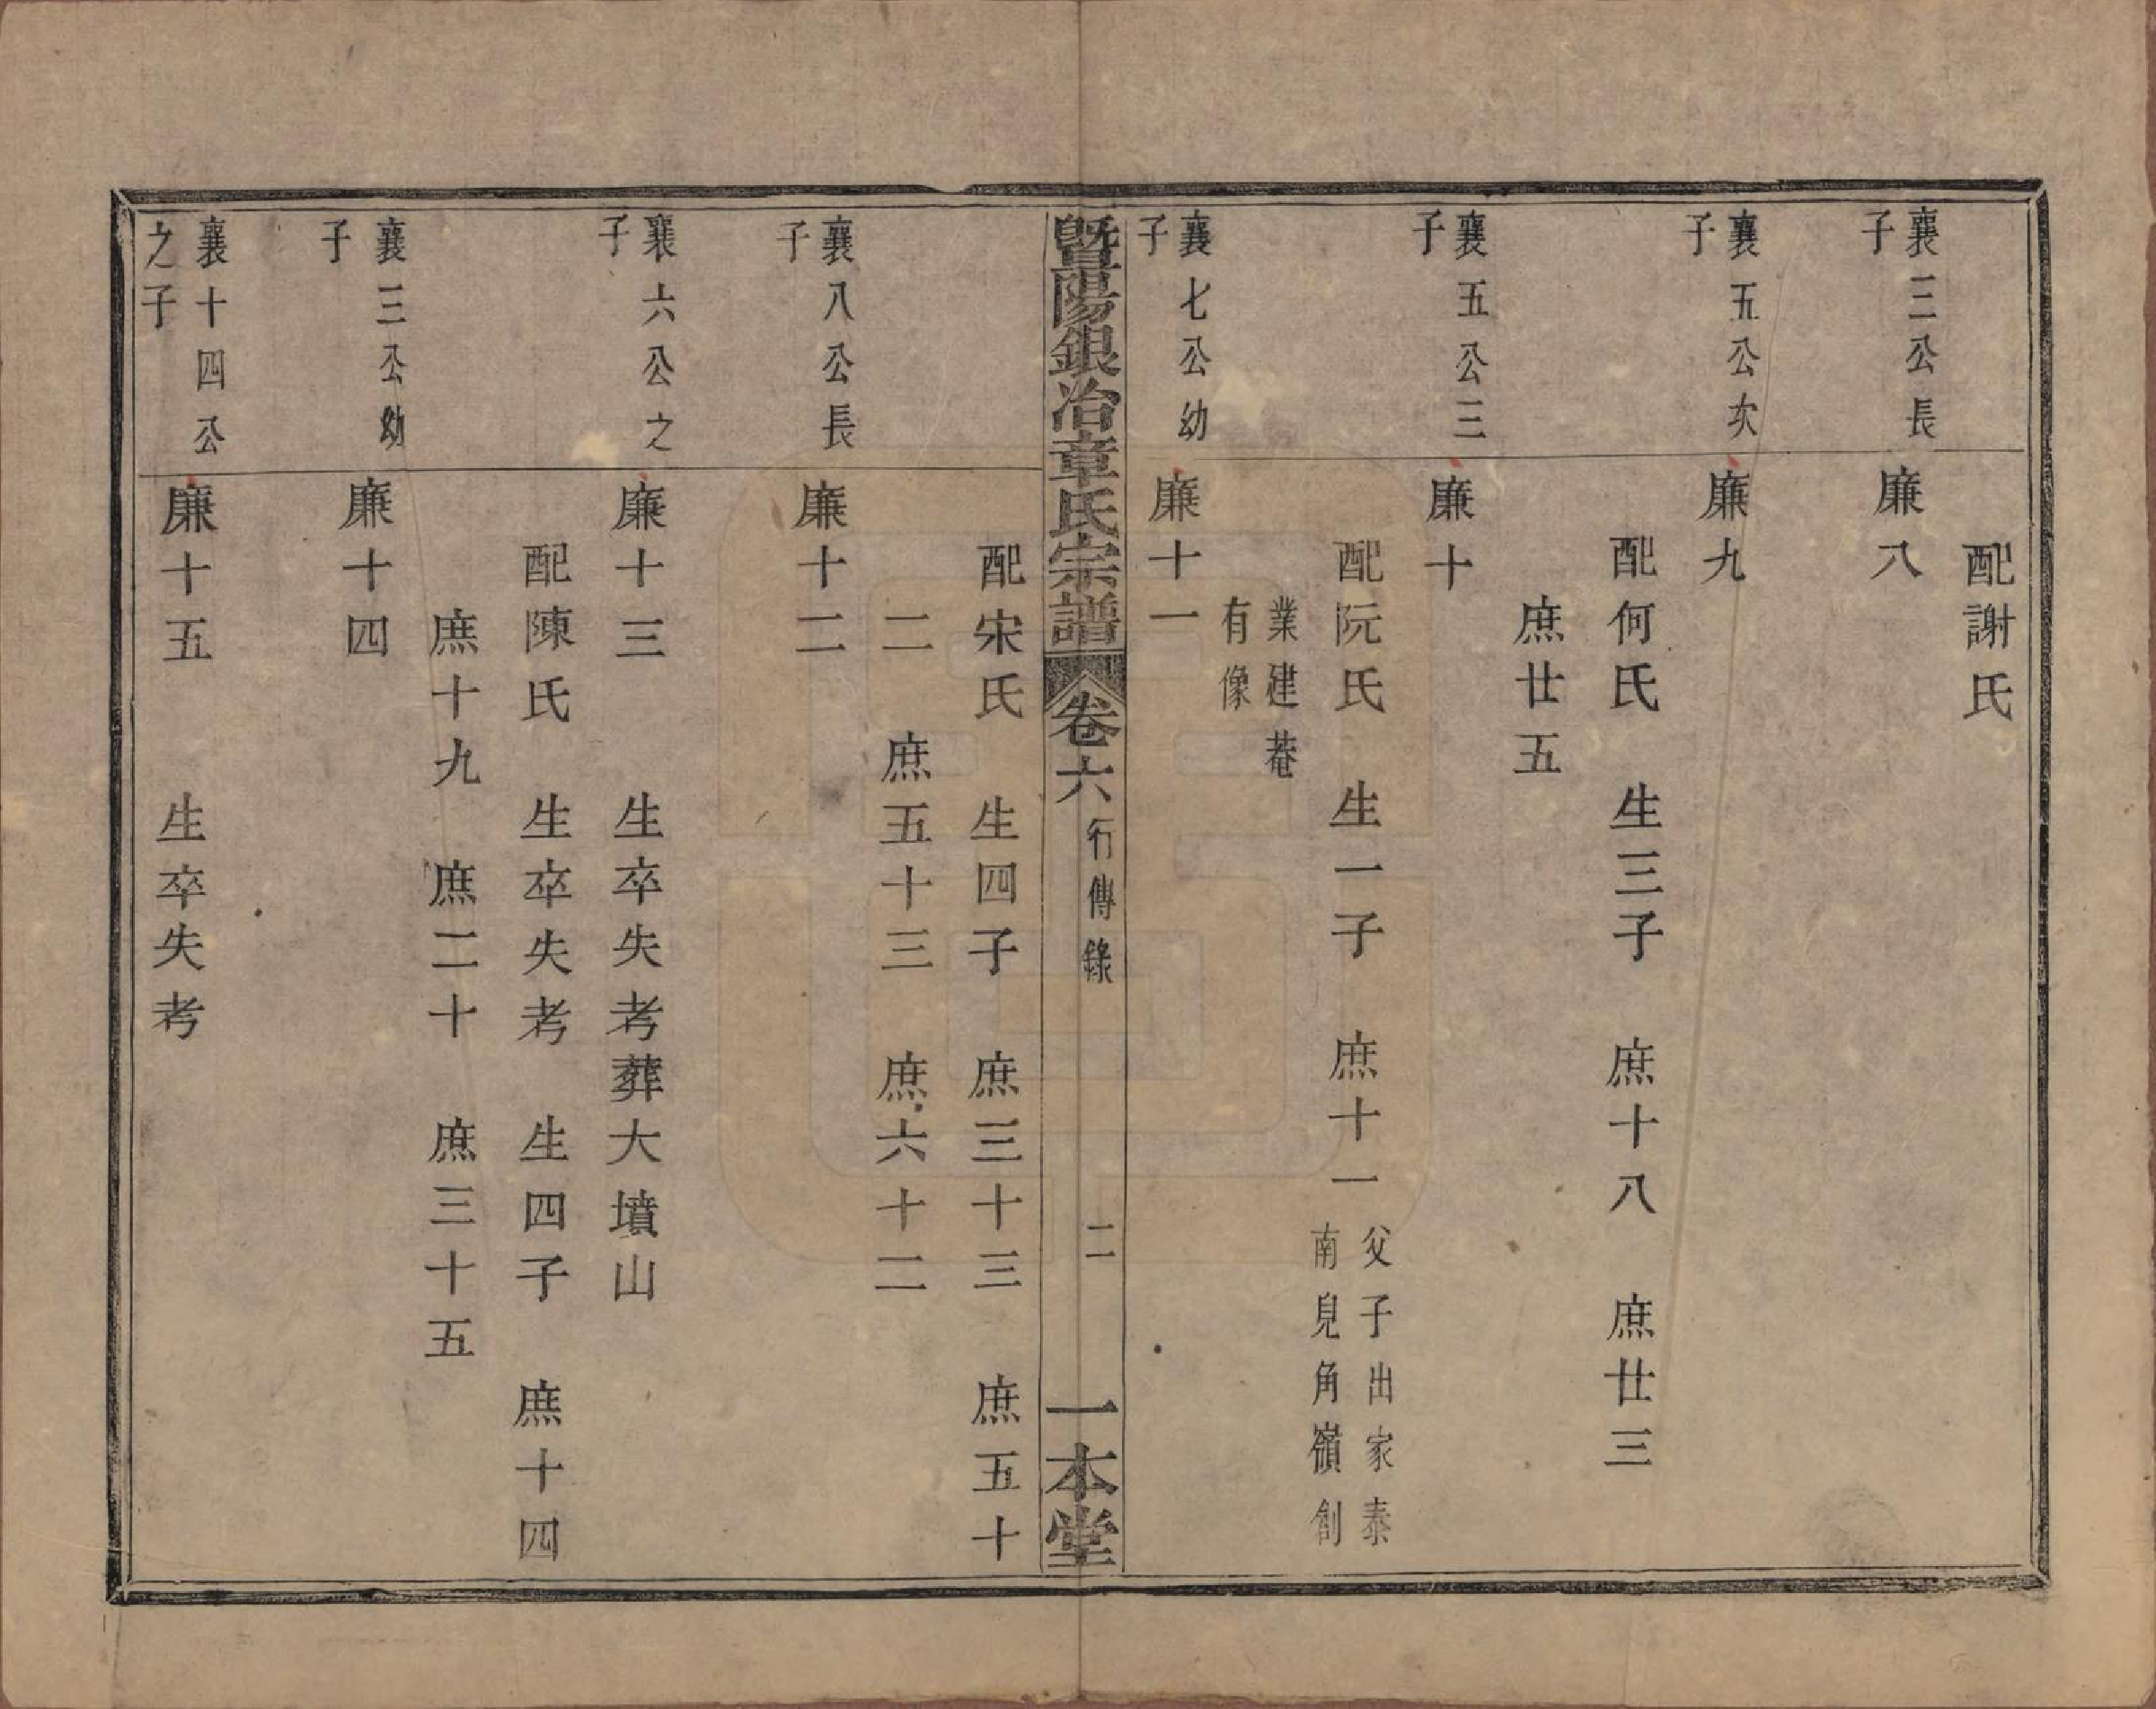 配謝氏
襄三公長
子
廉八
襄五公次
子
廉九
配何氏 生三子 庶十八 庶廿三
庶廿五
襄五公三
子
廉十
配阮氏 生一子 庶十一 父子出家泰
南皃角嶺創
業建菴
有像
襄七公幼
子
廉十一
暨陽銀冶章氏宗譜 卷六 行傳錄 二 一本堂
配宋氏 生四子 庶三十三 庶五十
二 庶五十三 庶六十二
襄八公長
子
廉十二
襄六公之
子
廉十三 生卒失考葬大墳山
配陳氏 生卒失考 生四子 庶十四
庶十九 庶二十 庶三十五
襄三公幼
子
廉十四
襄十四公
之子
廉十五 生卒失考